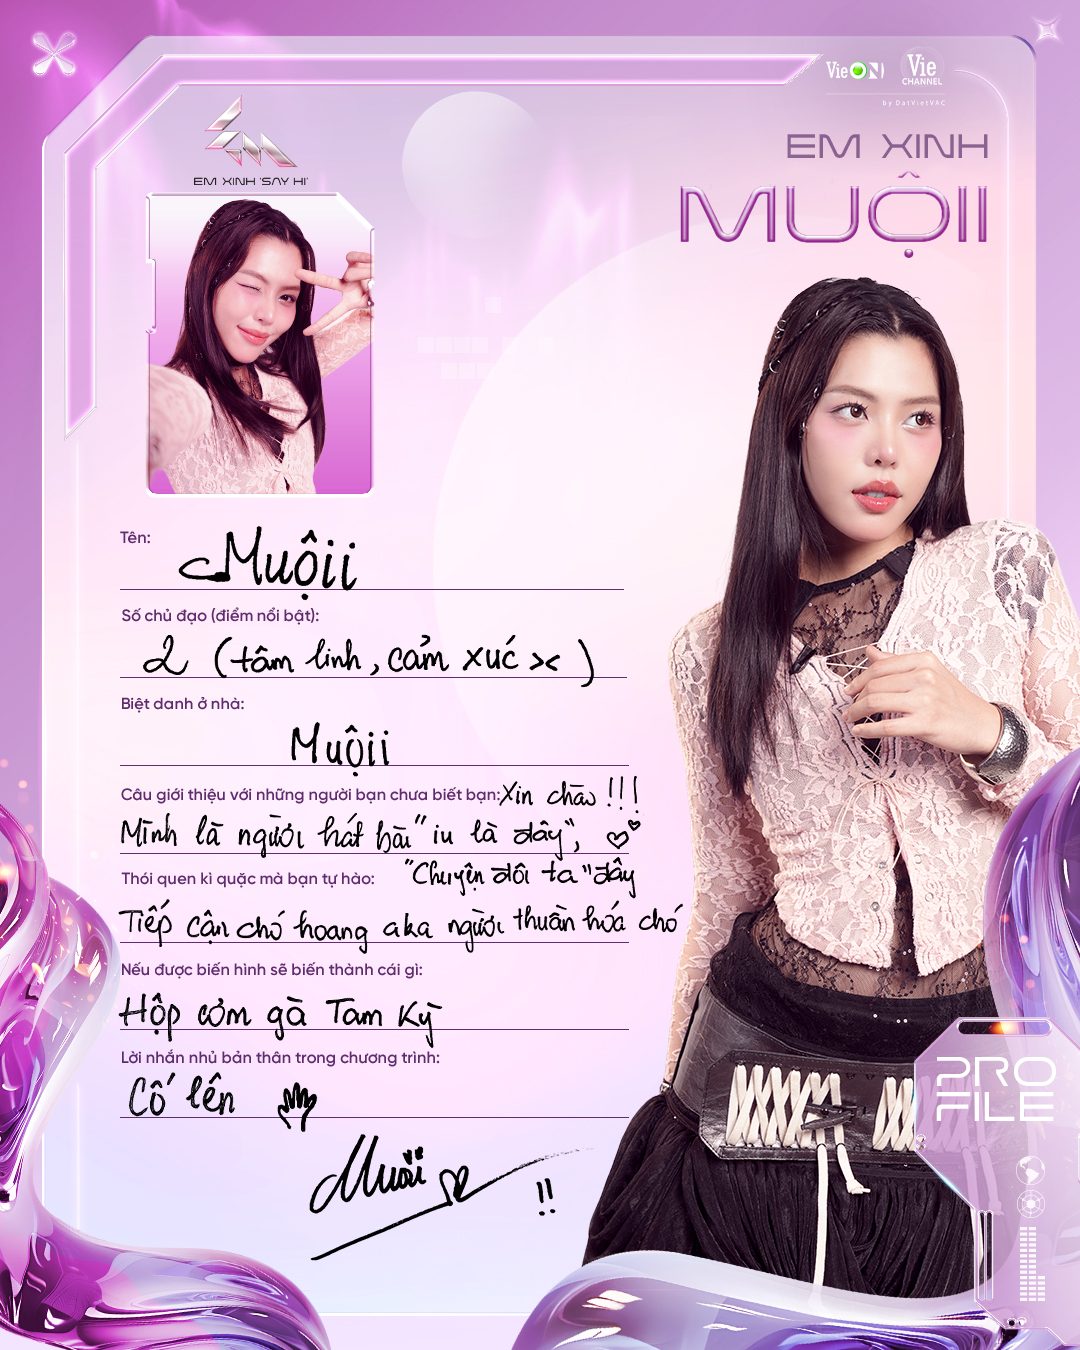 VieON
Vie CHANNEL
by DatVietVAC
EM XINH 'SAY HI'
EM XINH
MUỘII
Tên:
Muộii
Số chủ đạo (điểm nổi bật):
2 (tâm linh, cảm xúc >< )
Biệt danh ở nhà:
Muộii
Câu giới thiệu với những người bạn chưa biết bạn: Xin chào !!!
Mình là người hát bài "iu là đây",
"Chuyện đôi ta" đây
Thói quen kì quặc mà bạn tự hào:
Tiếp cận chó hoang aka người thuần hóa chó
Nếu được biến hình sẽ biến thành cái gì:
Hộp cơm gà Tam Kỳ
Lời nhắn nhủ bản thân trong chương trình:
Cố lên
Muộii
!!
PRO
FILE